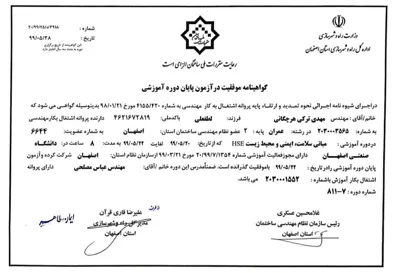 وزارت راه و شهرسازی
اداره کل راه و شهرسازی استان اصفهان
شماره :
تاریخ : ۹۹/۰۵/۲۸
رعایت مقررات ملی ساختمان الزامی است
گواهینامه موفقیت در آزمون پایان دوره آموزشی
در اجرای شیوه نامه اجرائی نحوه تمدید و ارتقاء پایه پروانه اشتغال به کار مهندسی به شماره ۲۱۵۵/۴۲۰ مورخ ۹۸/۰۱/۲۱ بدینوسیله گواهی می شود که
خانم/آقای : مهدی ترکی هرچگانی فرزند: لطفعلی باکدملی: ۴۶۲۱۶۷۲۸۱۹ دارنده پروانه اشتغال بکار مهندسی
به شماره ۲۰۳۰۰۲۵۶۵ در رشته: عمران پایه: ۲ عضو نظام مهندسی ساختمان استان: اصفهان به شماره عضویت: ۶۶۴۴
در دوره آموزشی : مبانی سلامت، ایمنی و محیط زیست HSE که از تاریخ ۹۹/۰۵/۲۰ لغایت ۹۹/۰۵/۲۲ به مدت: ۸ ساعت در: دانشگاه
صنعتی اصفهان دارای مجوز فعالیت آموزشی شماره ۲۰/۹۹/۷۱۳۵۴ مورخ ۹۹/۰۳/۳۱ از سازمان نظام مهندسی استان: اصفهان شرکت کرده و آزمون
پایان دوره آموزشی را در تاریخ ۹۹/۰۵/۲۲ با موفقیت گذرانده است. ضمناً مدرس این دوره خانم/آقای: مهندس عباس مصلحی دارای پروانه
اشتغال بکار آموزش به شماره ۲۰۳۰۰۰۱۵۵۲ می باشد.
شماره دوره : ۸۱۱-۷
غلامحسین عسکری
رئیس سازمان نظام مهندسی ساختمان
استان اصفهان
علیرضا قاری قرآن
مدیر کل راه و شهرسازی
استان اصفهان